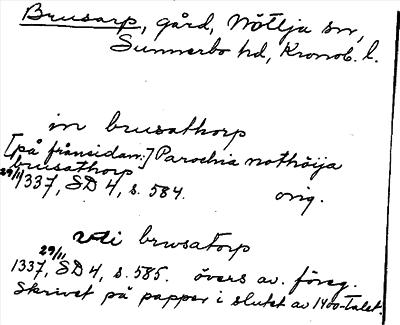 Brusarp, gård, Nöttja sn,
Sunnerbo hd, Kronob. l.
in brusathorp
[på frånsidan:] Parochia nothöija
brusathorp
29/11 1337, SD 4, s. 584. orig.
uti brwsatorp
29/11
1337, SD 4, s. 585. övers av. föreg.
Skrivet på papper i slutet av 1400-talet.